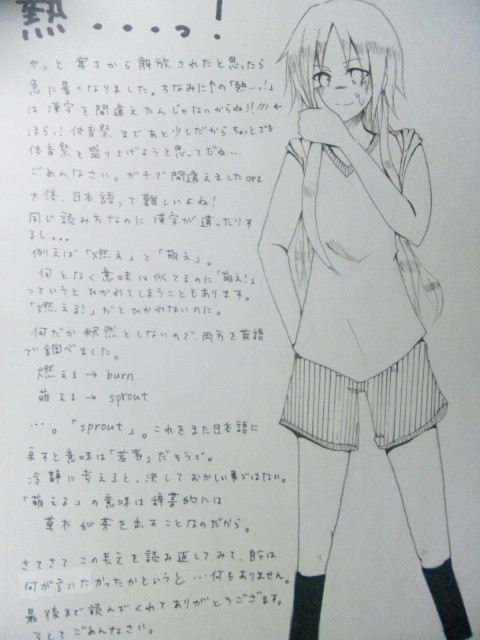 熱・・・っ!
やっと寒さから解放されたと思ったら
急に暑くなりました。ちなみに↑の「熱…っ!」
は漢字を間違えたんじゃないからね!!///←
ほらっ!体育祭まであと少しだからちょっとでも
体育祭を盛り上げようと思ってだね…
ごめんなさい。ガチで間違えましたorz
大体、日本語って難しいよね!
同じ読み方なのに漢字が違ったりす
るし…
例えば「燃え」と「萌え」。
何となく意味は似てるのに「萌え!」
っていうとひかれてしまうこともあります。
「燃える!」だとひかれないのに。
何だか釈然としないので、両方を英語
で調べました。
燃える→burn
萌える→sprout
…。「sprout」。これをまた日本語に
戻すと意味は「若者」だそうで。
冷静に考えると、決しておかしい事ではない。
「萌える」の意味は辞書的には
草木が芽を出すことなのだから。
さてさてこの長文を読み返してみて、自分は
何が言いたかったかというと…何もありません。
最後まで読んでくれてありがとうございます。
そしてごめんなさい。